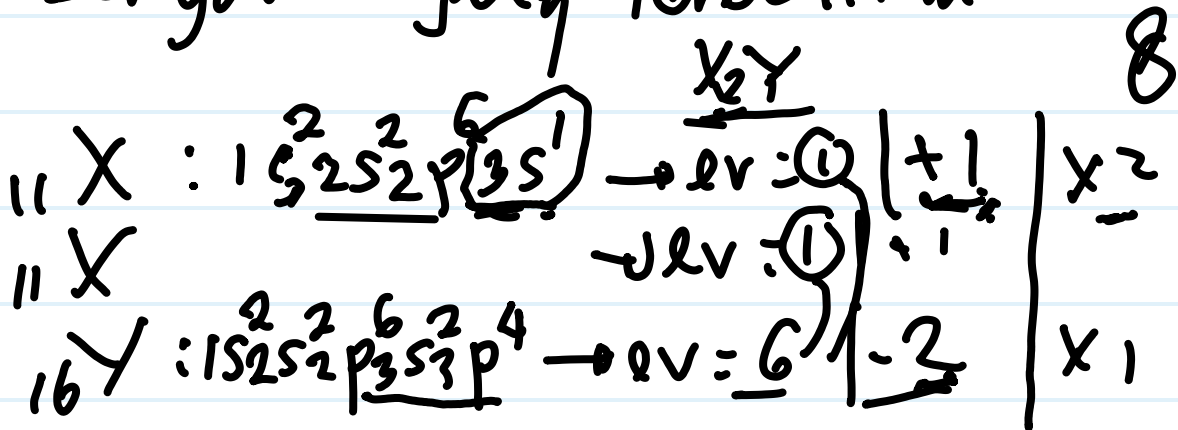 X₂Y
8
₁₁X : 1s² 2s² 2p⁶ 3s¹ → ev : 1 | +1 | x 2
₁₁X → ev : 1 | 1
₁₆Y : 1s² 2s² 2p⁶ 3s² 3p⁴ → ev = 6 | -2 | x 1